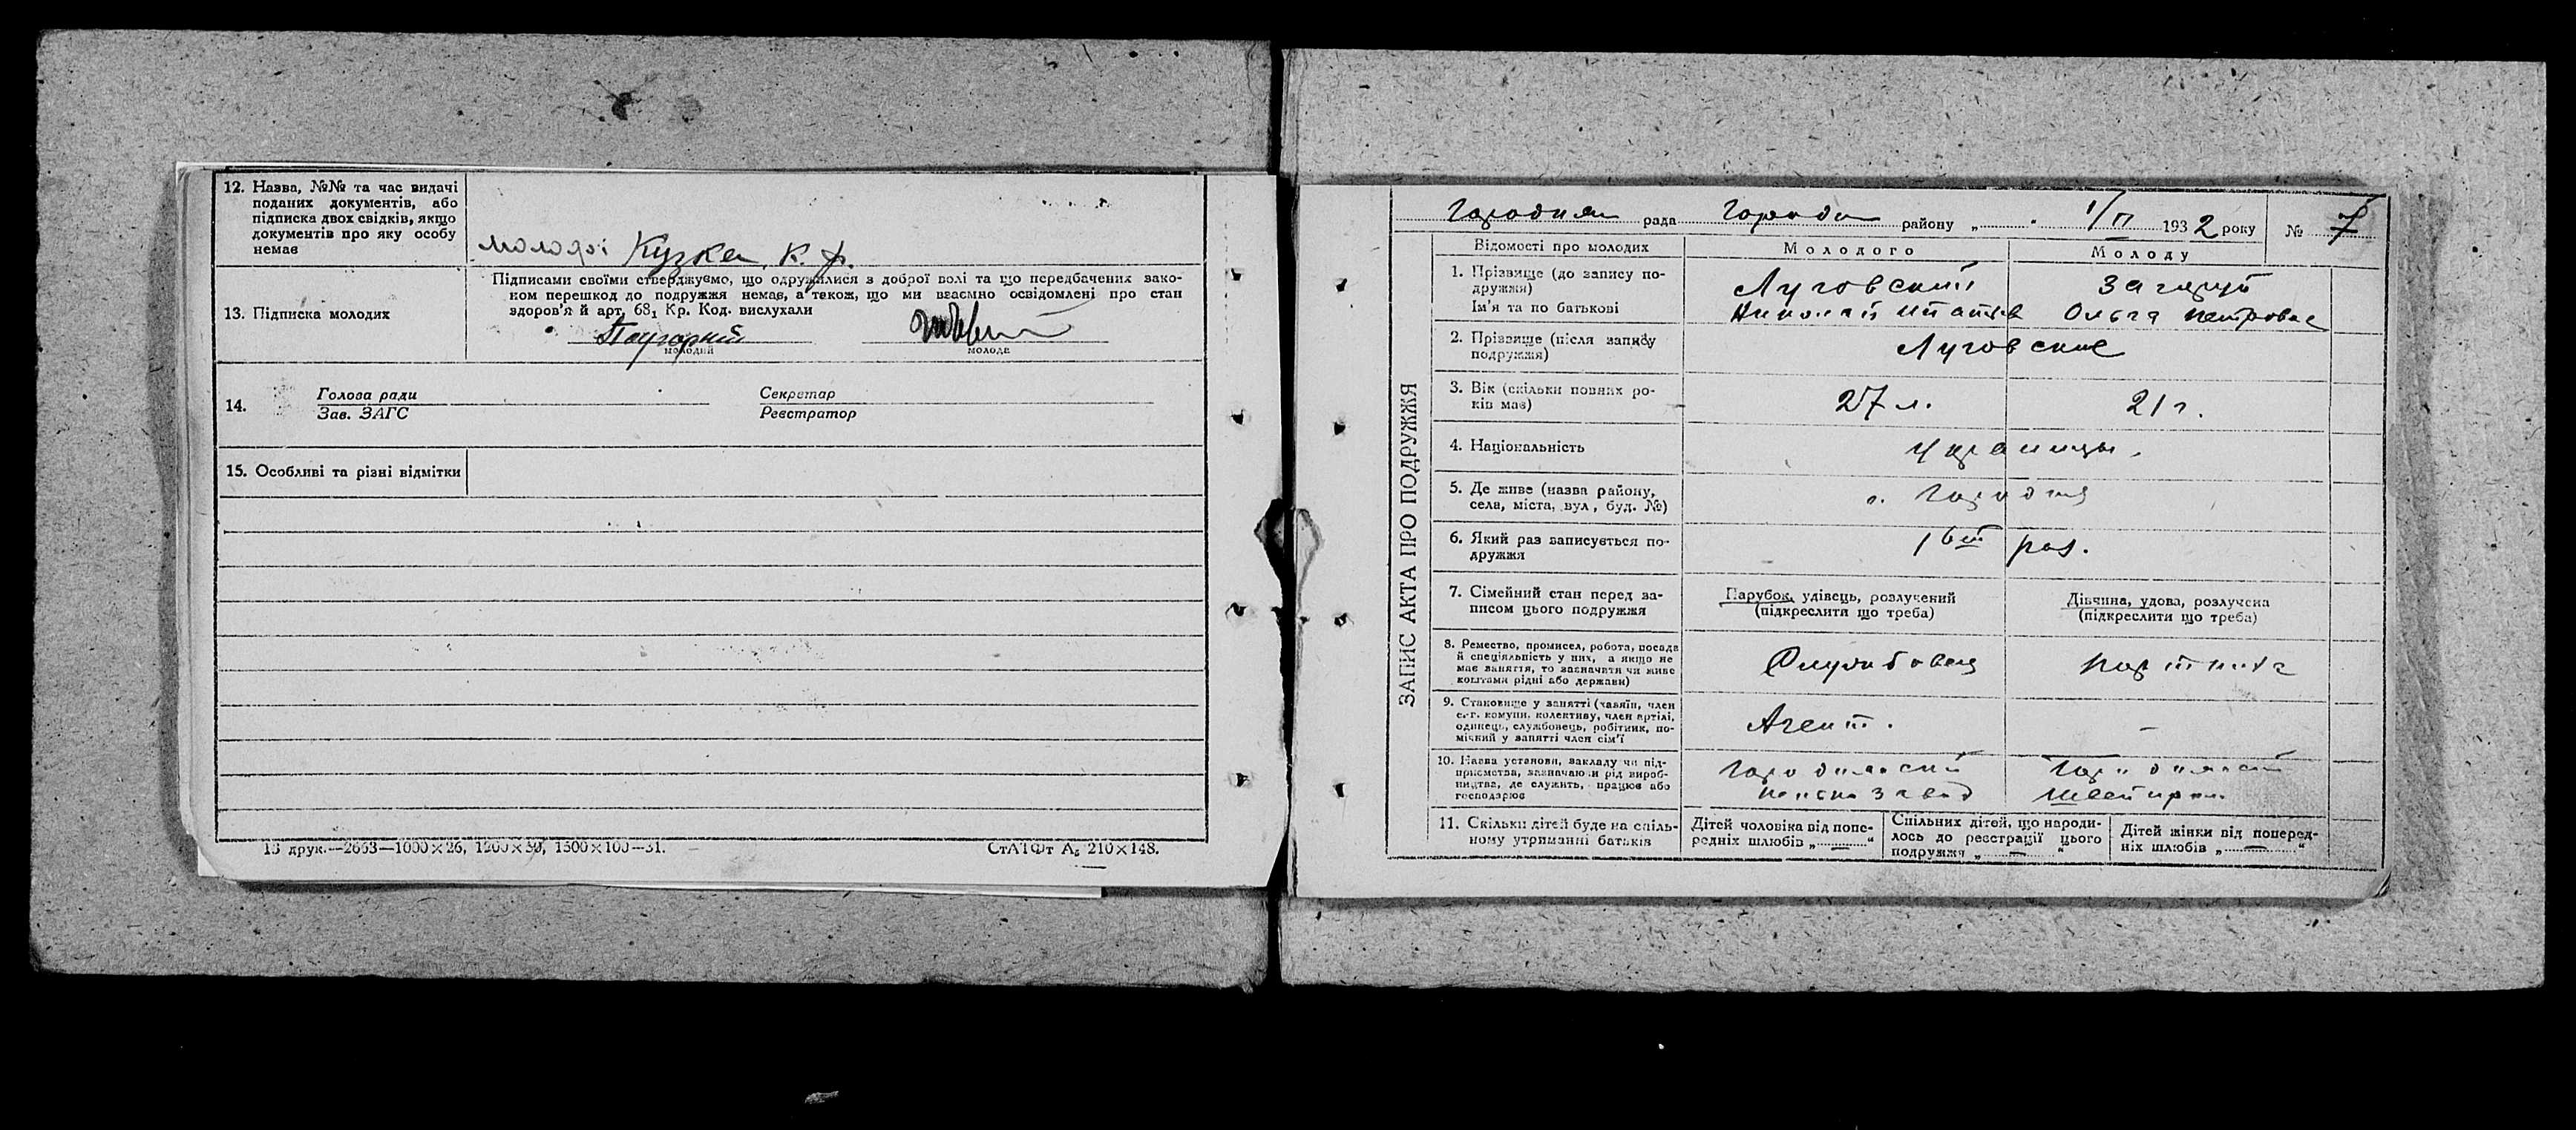 12. Назва, №№ та час видачі
поданих документів, або
підписка двох свідків, якщо
документів про яку особу
немає
молоді Кузка К. Ф.
13. Підписка молодих
Підписами своїми стверджуємо, що одружилися з доброї волі та що передбачених зако-
ном перешкод до подружжя немає, а також, що ми взаємно освідомлені про стан
здоров'я й арт. 68₁ Кр. Код. вислухали
молодий
молода
14.
Голова ради
Зав. ЗАГС
Секретар
Реєстратор
15. Особливі та різні відмітки
13 друк.—2663—1000×26, 1200×50, 1500×100—31.
СтАТФт А₅ 210×148.
ЗАПИС АКТА ПРО ПОДРУЖЖЯ
Городня рада района „ 1/II 1932 року № 7
Відомості про молодих
Молодого
Молоду
1. Прізвище (до запису по-
дружжя)
Ім'я та по батькові
Луговский
Николай Игнатьев
Загацуй
Ольга Петровна
2. Прізвище (після запису
подружжя)
Луговские
3. Вік (скільки повних ро-
ків має)
27 л.
21 г.
4. Національність
украинцы.
5. Де живе (назва району,
села, міста, вул, буд. №)
г. Городня
6. Який раз записується по-
дружжя
1вый раз.
7. Сімейний стан перед за-
писом цього подружжя
Парубок, удівець, розлучений
(підкреслити що треба)
Дівчина, удова, розлучена
(підкреслити що треба)
8. Ремество, промисел, робота, посада
й спеціяльність у них, а якщо не
має заняття, то зазначити чи живе
коштами рідні або держави)
Службовец
портниха
9. Становище у занятті (хазяїн, член
с.-г. комуни, колективу, член артілі,
одинець, службовець, робітник, по-
мічний у занятті член сім'ї
Агент.
–
10. Назва установи, закладу чи під-
приємства, зазначаючи рід вироб-
ництва, де служить, працює або
господарює
Городнянский
пенькозавод
Городнянский
Швейпром.
11. Скільки дітей буде на спіль-
ному утриманні батьків
Дітей чоловіка від попе-
редніх шлюбів „ — “
Спільних дітей, що народи-
лось до реєстрації цього
подружжя „ — “
Дітей жінки від поперед-
ніх шлюбів „ — “